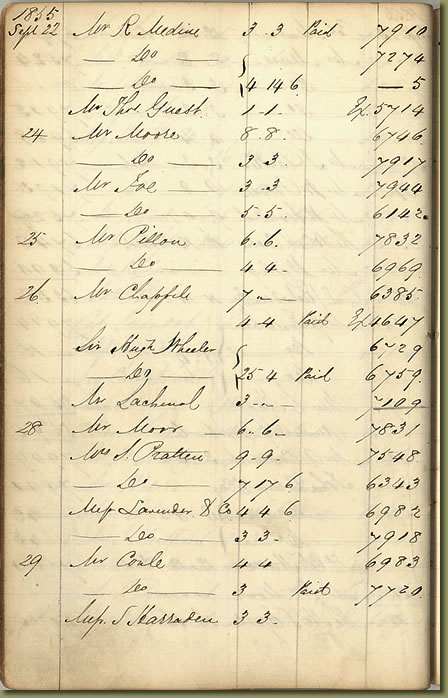 1855
Sept 22 Mr R. Medine 3 3 Paid 7910
— Do — 7274
— Do — 4 14 6 — 5
Mr Thos Guest 1 - 1 - Ex 5714
24 Mr Moore 8 - 8 - 6746
— Do — 3 3 - 7917
Mr Foe 3 - 3 7944
— Do — 5 - 5 - 6142
25 Mr Pillow 6 - 6 - 7832
— Do — 4 4 - 6969
26 Mr Chappell 7 " — 6385
4 - 4 Paid Ex 4647
Sir Hugh Wheeler 6729
— Do — 25 4 Paid 6759
Mr Lachenal 3 - " - 7109
28 Mr Moor — 6 - 6 - 7831
Mrs S. Pratten 9 - 9 - 7548
— Do — 7 17 6 6343
Messrs Lavender & Co 4 4 6 6982
— Do — 3 3 - 7918
29 Mr Coule 4 4 6983
Do — 3 Paid 7720
S Harraden 3 3 -